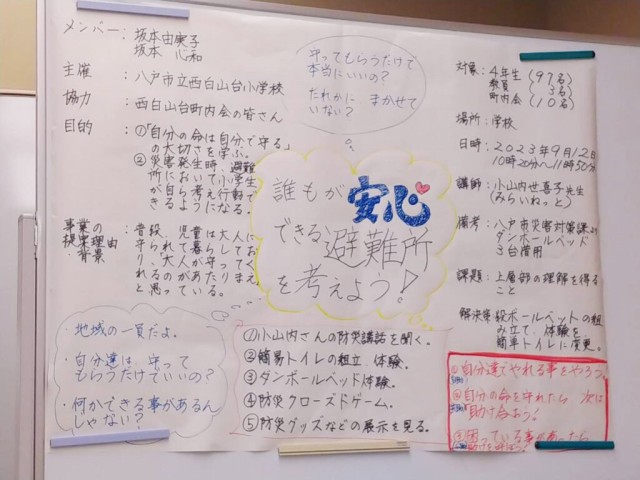 メンバー：坂本由実子
坂本 心和
主催：八戸市立西白山台小学校
協力：西白山台町内会の皆さん
目的：①「自分の命は自分で守る」
の大切さを学ぶ。
②災害発生時、避難
所において小学生
が自ら考え行動で
きるようになる。
事業の
提案理由
背景
：普段、児童は大人に
守られて暮らしてお
り、大人が守ってく
れるのがあたりまえ
と思っている。
守ってもらうだけで
本当にいいの？
だれかに まかせて
いない？
誰もが安心
できる避難所
を考えよう！
対象：4年生（97名）
教員（3名）
町内会（10名）
場所：学校
日時：2023年9月12日
10時20分〜11時50分
講師：小山内世喜子先生
（みらいねっと）
備考：八戸市災害対策課より
ダンボールベッド
3台借用
課題：上層部の理解を得る
こと
解決手段 ボールベットの組
み立て 体験を
簡単トイレに変更。
・地域の一員だよ。
・自分達は 守って
もらうだけでいいの？
・何かできる事があるん
じゃない？
①小山内さんの防災講話を聞く。
②簡易トイレの組立、体験。
③ダンボールベッド体験。
④防災クローズドゲーム。
⑤防災グッズなどの展示を見る。
自分達でやれる事をやろう！
自分の命を守れたら 次は
助け合おう！
困っている事があったら